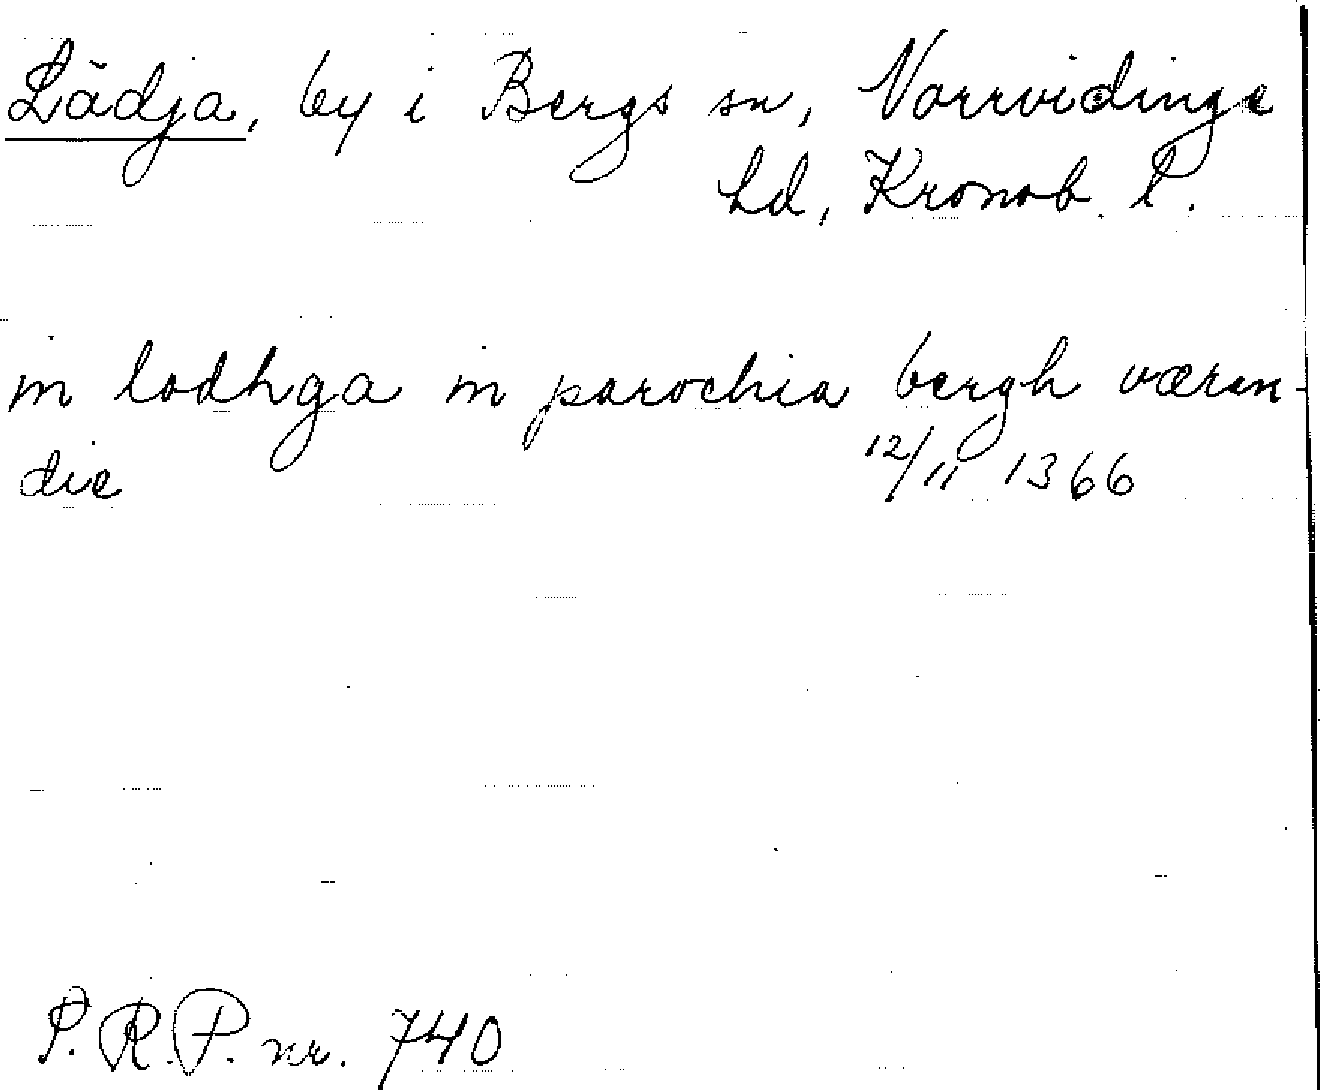 Lädja, by i Bergs sn, Norrvidinge
hd, Kronob. l.
in lodhga in parochia bergh væren-
die 12/11 1366
S.R.P. nr. 740